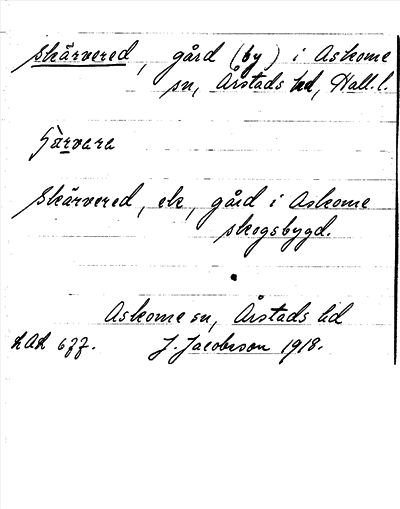 Skärvered, gård (by) i Askome
sn, Årstads hd, Hall. l.
Skärvered, ek, gård i Askome
skogsbygd.
Askome sn, Årstads hd
LAL 677. J. Jacobsson 1918.